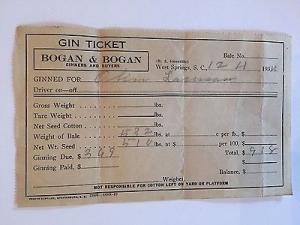 GIN TICKET
BOGAN & BOGAN
GINNERS AND BUYERS
Bale No.
West Springs, S. C., 12 4 193
GINNED FOR
Driver on—off
Gross Weight lbs.
Tare Weight lbs.
Net Seed Cotton lbs.
Weight of Bale 532 lbs. at c per lb. $
Net Wt. Seed 510 lbs. at per 100, $
Ginning Due, $ 369 Total, $ 918
Ginning Paid, $
Balance, $
Weigher
NOT RESPONSIBLE FOR COTTON LEFT ON YARD OR PLATFORM